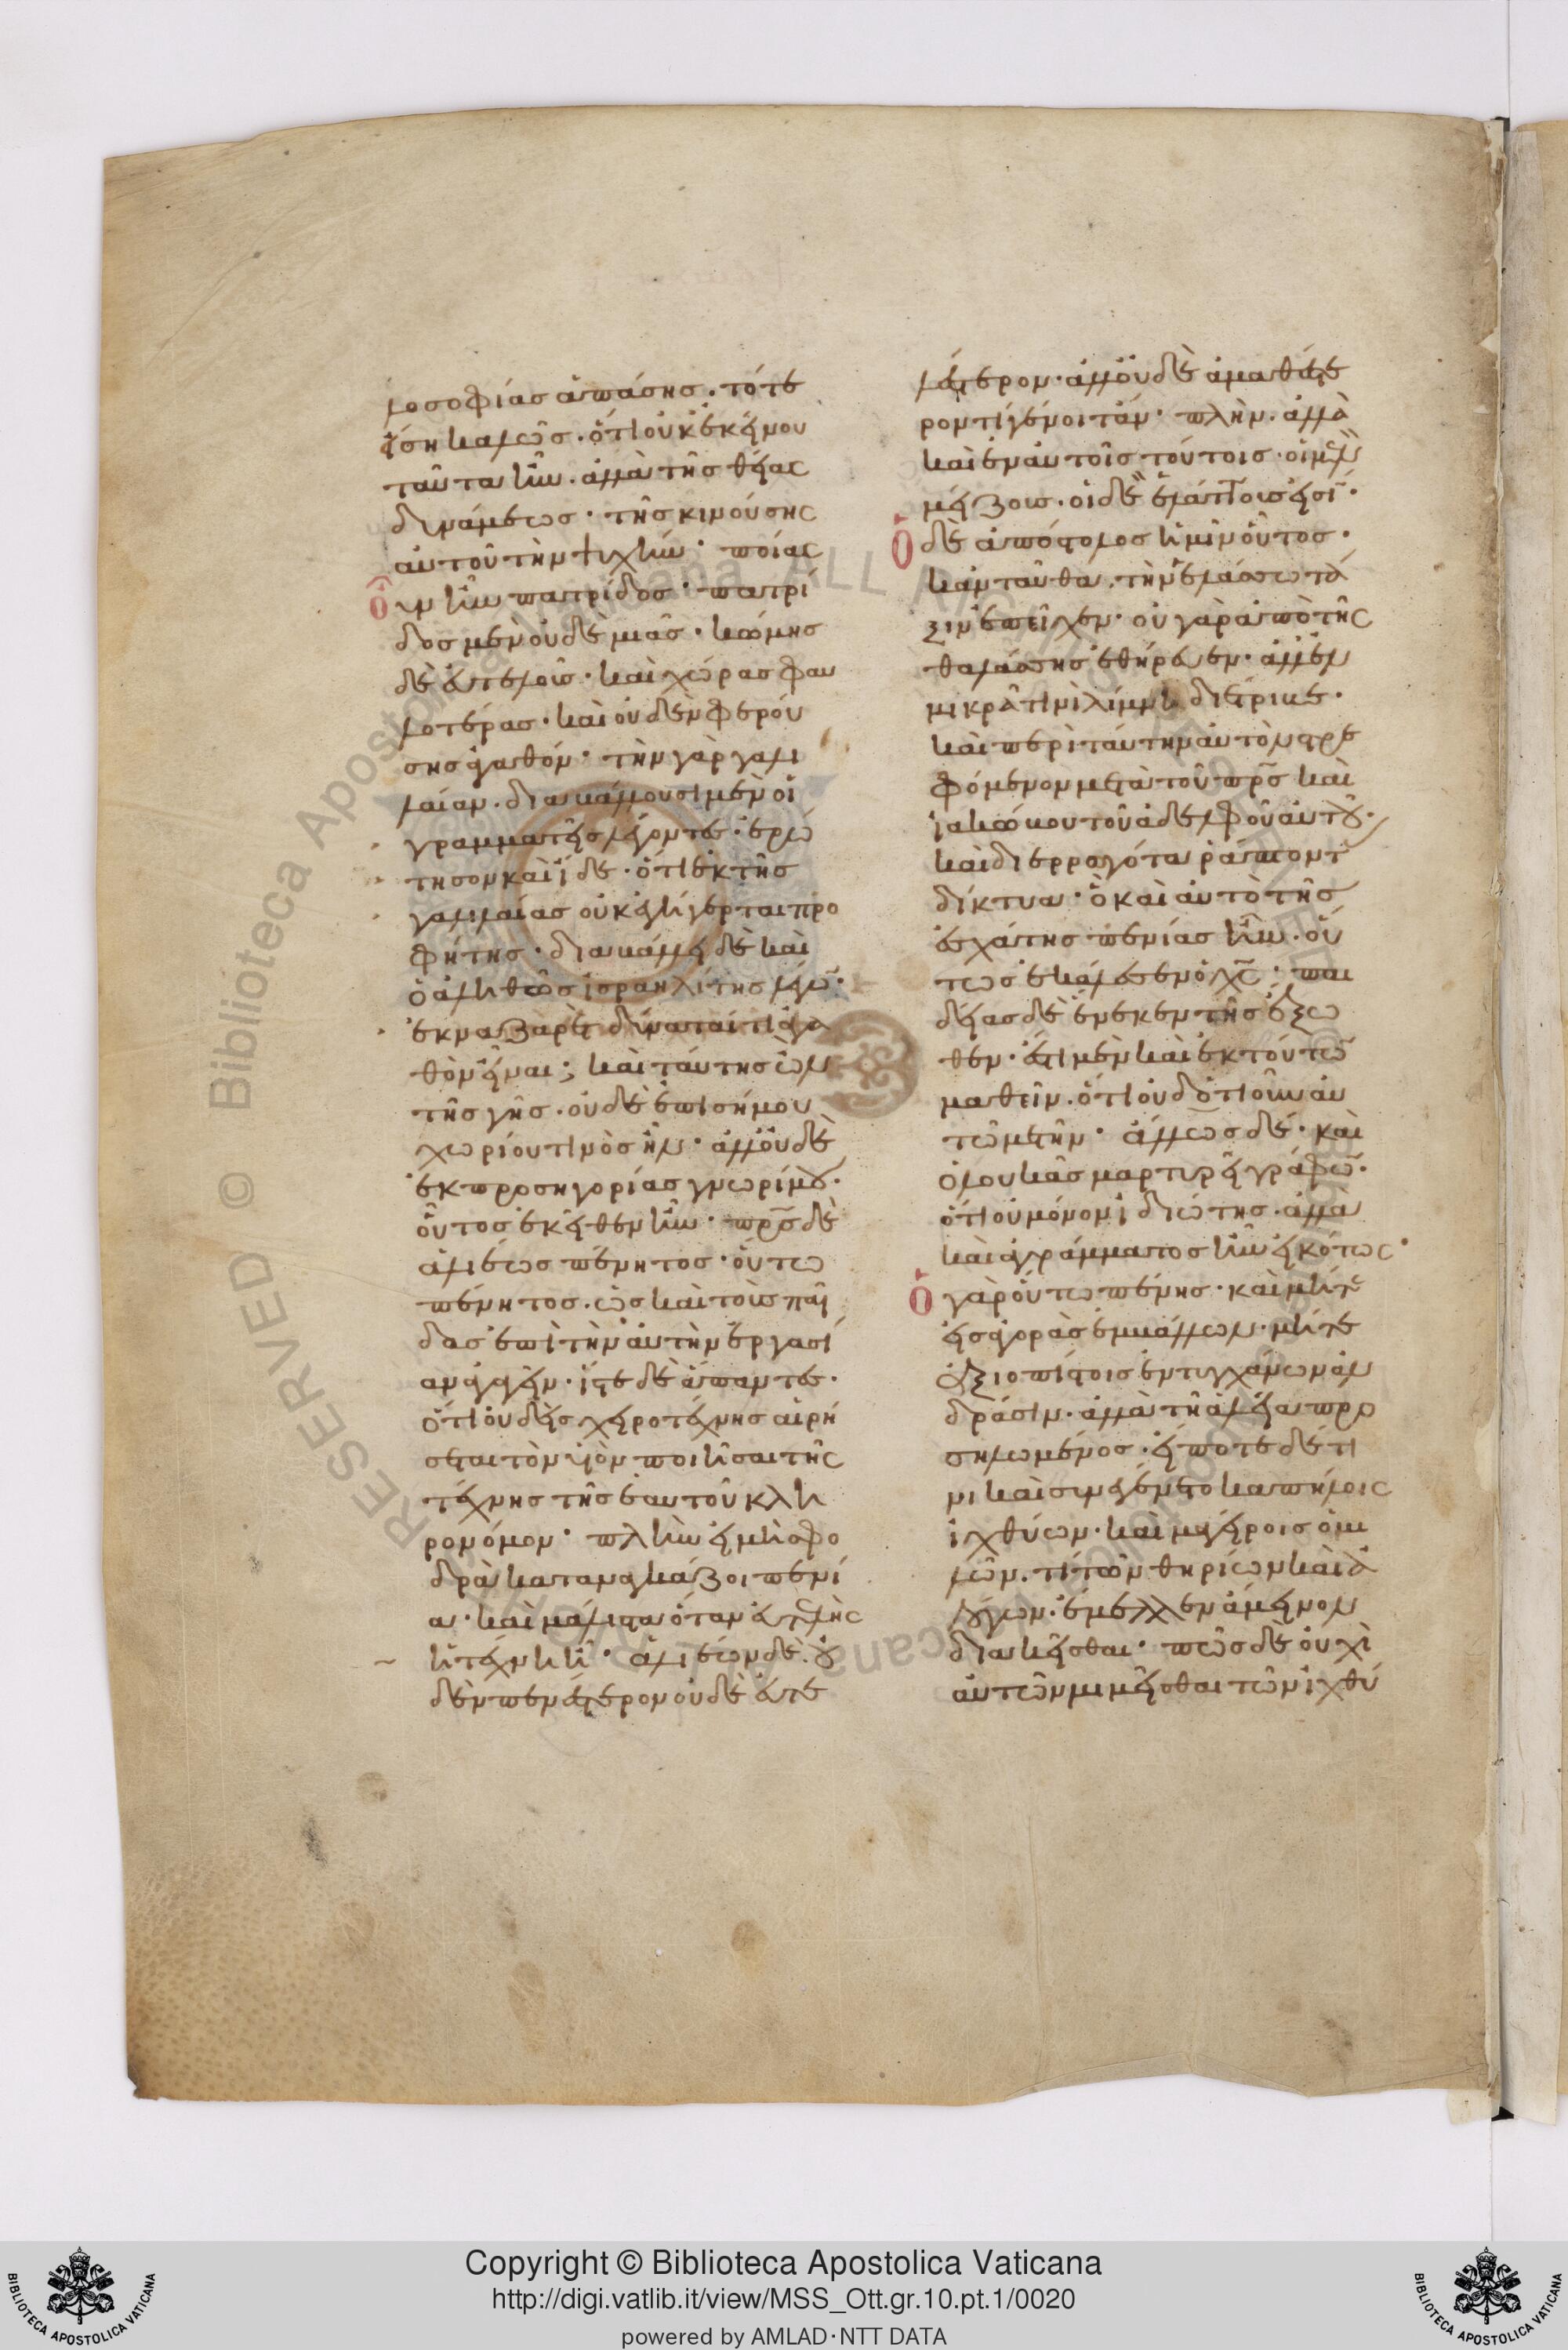 λοσοφίας ἁπάσης. τότε
εἴση καλῶς. ὅτι οὐκ ἐκείνου
ταῦτα ἦν. ἀλλὰ τῆς θείας
δυνάμεως. τῆς κινούσης
αὐτοῦ τὴν ψυχήν. ποίας
οὖν ἦν πατρίδος. πατρί
δος μὲν οὐδὲ μιᾶς. κώμης
δὲ εὐτελοῦς. καὶ χώρας φαυ
λοτέρας. καὶ οὐδὲν φερού
σης ἀγαθόν. τὴν γὰρ γαλι
λαίαν. διαβάλλουσι μὲν οἱ
γραμματεῖς λέγοντες. ἐρώ
τησον καὶ ἴδε. ὅτι ἐκ τῆς
γαλιλαίας οὐκ ἐγήγερται προ
φήτης. διαβάλλει δὲ καὶ
ὁ ἀληθῶς ἰσραηλίτης λέγων.
ἐκ ναζαρὲτ δύναταί τι ἀγα
θὸν εἶναι; καὶ ταύτης ὢν
τῆς γῆς. οὐδὲ ἐπισήμου
χωρίου τινὸς ἦν. ἀλλ' οὐδὲ
ἐκ προσηγορίας γνωρίμου.
οὗτος ἐκεῖθεν ἦν. πρς δὲ
ἁλιέως πένητος. οὕτω
πένητος. ὡς καὶ τοὺς παῖ
δας ἐπὶ τὴν αὐτὴν ἐργασί
αν ἀγαγεῖν. ἴστε δὲ ἅπαντες.
ὅτι οὐδεὶς χειροτέχνης αἱρή
σεται τὸν υἱὸν ποιῆσαι τῆς
τέχνης τῆς ἑαυτοῦ κλη
ρονόμον. πλὴν εἰ μὴ σφο
δρὰ καταναγκάζοι πενί
α. καὶ μάλιστα ὅταν εὐτελὴς
ἡ τέχνη ἦ. ἁλιέων δὲ. οὐ
δὲν πενέστερον οὐδὲ εὐτε
λέστερον. ἀλλ' οὐδὲ ἀμαθέστε
ρόν τι γένοιτ' ἄν. πλὴν. ἀλλὰ
καὶ ἐν αὐτοῖς τούτοις. οἱ μὲν
μείζους. οἱ δὲ ἐλάττους εἰσί.
Ὁ δὲ ἀπόστολος ἡμῖν οὗτος.
κἀνταῦθα. τὴν ἐλάσσω τά
ξιν ἐπεῖχεν. οὐ γὰρ ἀπὸ τῆς
θαλάσσης ἐθήρευεν. ἀλλ' ἐν
μικρᾶ τινὶ λίμνη διέτριβε.
καὶ περὶ ταύτην αὐτὸν στρε
φόμενον μετὰ τοῦ πρς καὶ
ἰακώβου τοῦ ἀδελφοῦ αὐτοῦ.
καὶ διερρωγότα ῥάπτοντ
δίκτυα. ὃ καὶ αὐτὸ τῆς
ἐσχάτης πενίας ἦν. οὕ
τως ἐκάλεσεν ὁ χς. παι
δείας δὲ ἕνεκεν τῆς ἔξω
θεν. ἔστι μὲν καὶ ἐκ τούτων
μαθεῖν. ὅτι οὐδοτιοῦν αὐ
τῶ μετῆν. ἄλλως δέ. καὶ
ὁ λουκᾶς μαρτυρεῖ γράφων.
ὅτι οὐ μόνον ἰδιώτης. ἀλλὰ
καὶ ἀγράμματος ἦν εἰκότως.
Ὁ γὰρ οὕτω πένης. καὶ μήτε
εἰς ἀγορὰς ἐμβάλλων. μήτε
ἀξιοπίστοις ἐντυγχάνων ἀν
δράσιν. ἀλλὰ τῆ ἁλιεία προσ
ηλωμένος. εἴ ποτε δέ τι
νι καὶ συνεγένετο καπήλοις
ἰχθύων. καὶ μαγείροις ὁμι
λῶν. τί τῶν θηρίων καὶ ἀ
λόγων. ἔμελλεν ἄμεινον
διακεῖσθαι. πῶς δὲ οὐχὶ
αὐτῶν μιμεῖσθαι τῶν ἰχθύ
Copyright © Biblioteca Apostolica Vaticana
http://digi.vatlib.it/view/MSS_Ott.gr.10.pt.1/0020
powered by AMLAD·NTT DATA